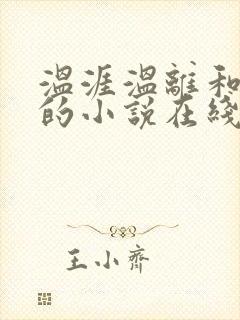 温涯温離和
的小説在綫
王小齋